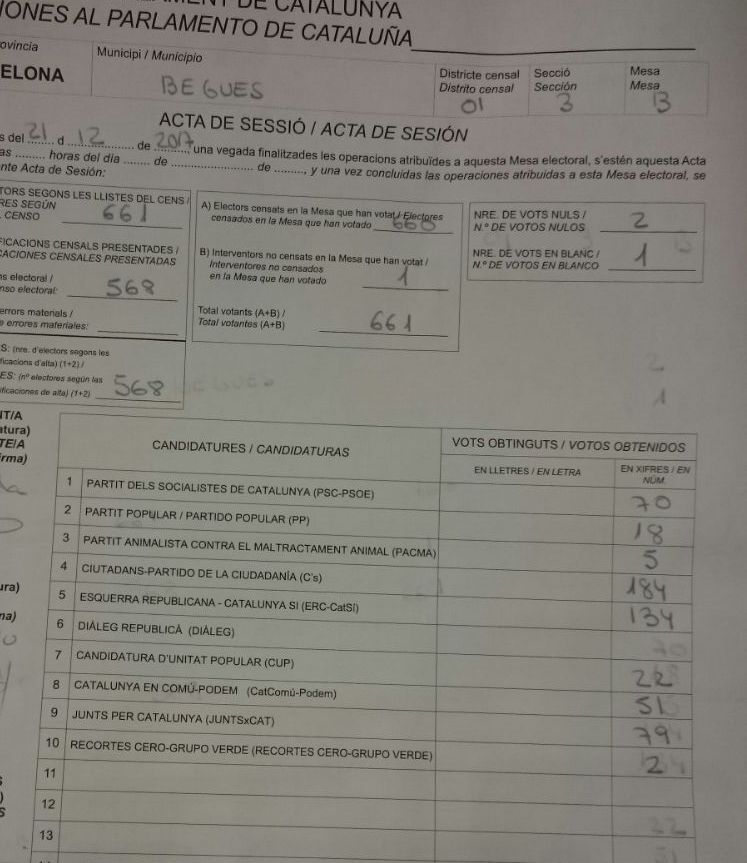 IONES AL PARLAMENTO DE CATALUÑA
ovincia
ELONA
Municipi / Municipio
BEGUES
Districte censal
Distrito censal
01
Secció
Sección
3
Mesa
Mesa
B
ACTA DE SESSIÓ / ACTA DE SESIÓN
s del 21 d 12 de 2017 una vegada finalitzades les operacions atribuïdes a aquesta Mesa electoral, s'estén aquesta Acta
as horas del día de de , y una vez concluidas las operaciones atribuidas a esta Mesa electoral, se
nte Acta de Sesión:
TORS SEGONS LES LLISTES DEL CENS /
RES SEGÚN
CENSO 661
FICACIONS CENSALS PRESENTADES /
CACIONES CENSALES PRESENTADAS
s electoral /
nso electoral: 568
errors materials /
e errores materiales:
S: (nre. d'electors segons les
ificacions d'alta) (1+2) /
ES: (nº electores según las
ificaciones de alta) (1+2) 568
A) Electors censats en la Mesa que han votat / Electores
censados en la Mesa que han votado 660
B) Interventors no censats en la Mesa que han votat /
Interventores no censados
en la Mesa que han votado 1
Total votants (A+B) /
Total votantes (A+B) 661
NRE. DE VOTS NULS /
N.º DE VOTOS NULOS 2
NRE. DE VOTS EN BLANC /
N.º DE VOTOS EN BLANCO 1
CANDIDATURES / CANDIDATURAS
VOTS OBTINGUTS / VOTOS OBTENIDOS
EN LLETRES / EN LETRA
EN XIFRES / EN NÚM
1 PARTIT DELS SOCIALISTES DE CATALUNYA (PSC-PSOE) 70
2 PARTIT POPULAR / PARTIDO POPULAR (PP) 18
3 PARTIT ANIMALISTA CONTRA EL MALTRACTAMENT ANIMAL (PACMA) 5
4 CIUTADANS-PARTIDO DE LA CIUDADANÍA (C's) 184
5 ESQUERRA REPUBLICANA - CATALUNYA SÍ (ERC-CatSí) 134
6 DIÀLEG REPUBLICÀ (DIÀLEG)
7 CANDIDATURA D'UNITAT POPULAR (CUP) 22
8 CATALUNYA EN COMÚ-PODEM (CatComú-Podem) 51
9 JUNTS PER CATALUNYA (JUNTSxCAT) 79
10 RECORTES CERO-GRUPO VERDE (RECORTES CERO-GRUPO VERDE) 2
11
12
13